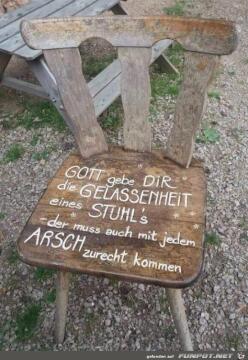 GOTT gebe DIR
die GELASSENHEIT
eines STUHL's
der muss auch mit jedem
ARSCH zurecht kommen
gefunden auf FUNPOT.NET